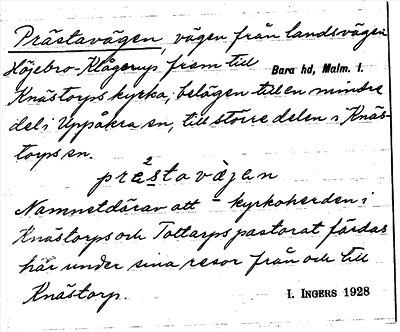 Prästavägen, vägen från landsvägen
Höjebro-Klågerup fram till Bara hd, Malm. l.
Knästorps kyrka, belägen till en mindre
del i Uppåkra sn, till större delen i Knäs-
torps sn.
præ²stavàjen
Namnet därav att kyrkoherden i
Knästorps och Tottarps pastorat färdas
här under sina resor från och till
Knästorp.
I. INGERS 1928